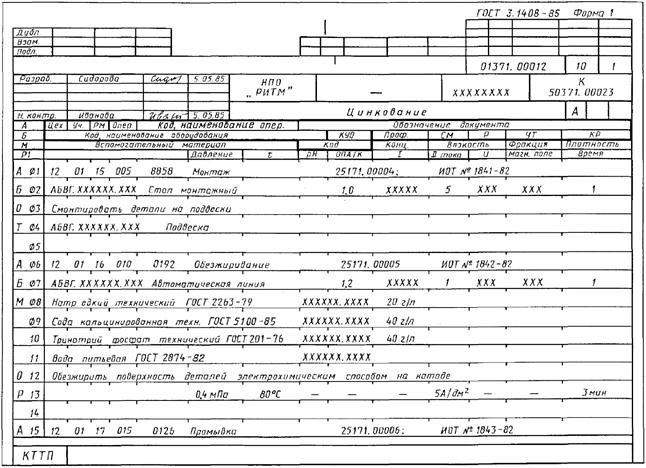 ГОСТ 3.1408-85 Форма 1
Дубл.
Взам.
Подл.
01371.00012 10 1
Разраб. Сидорова 5.05.85 НПО „РИТМ" — XXXXXXXX К 50371.00023
Н.контр. Иванова 5.05.85 Цинкование А
А Цех Уч. РМ Опер. Код, наименование опер. Обозначение документа
Б Код, наименование оборудования КУО Проф. СМ Р УТ КР
М Вспомогательный материал Код Конц. Вязкость Фракция Плотность
Р1 Давление τ pH ОПА/К I П тока U Магн. поле Время
А 01 12 01 15 005 8858 Монтаж 25171.00004; ИОТ № 1841-82
Б 02 АБВГ.XXXXXX.XXX Стол монтажный 1,0 XXXXX 5 XXX XXX 1
О 03 Смонтировать детали на подвески
Т 04 АБВГ.XXXXXX.XXX Подвеска
05
А 06 12 01 16 010 0192 Обезжиривание 25171.00005 ИОТ № 1842-82
Б 07 АБВГ.XXXXXX.XXX Автоматическая линия 1,2 XXXXX 1 XXX XXX 1
М 08 Натр едкий технический ГОСТ 2263-79 XXXXXX.XXXX 20 г/л
09 Сода кальцинированная техн. ГОСТ 5100-85 XXXXXX.XXXX 40 г/л
10 Тринатрий фосфат технический ГОСТ 201-76 XXXXXX.XXXX 40 г/л
11 Вода питьевая ГОСТ 2874-82 XXXXXX.XXXX
О 12 Обезжирить поверхность деталей электрохимическим способом на катоде
Р 13 0,4 мПа 80°С — — — 5А/дм² — — 3 мин
14
А 15 12 01 17 015 0126 Промывка 25171.00006; ИОТ № 1843-82
КТТП